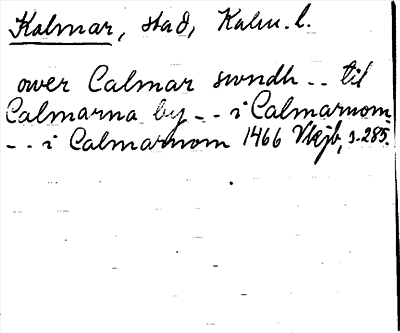 Kalmar, stad, Kalm. l.
ower Calmar swndh - - til
Calmarna by - - i Calmarnom
- - i Calmarnom 1466 Vkjb, s. 285.